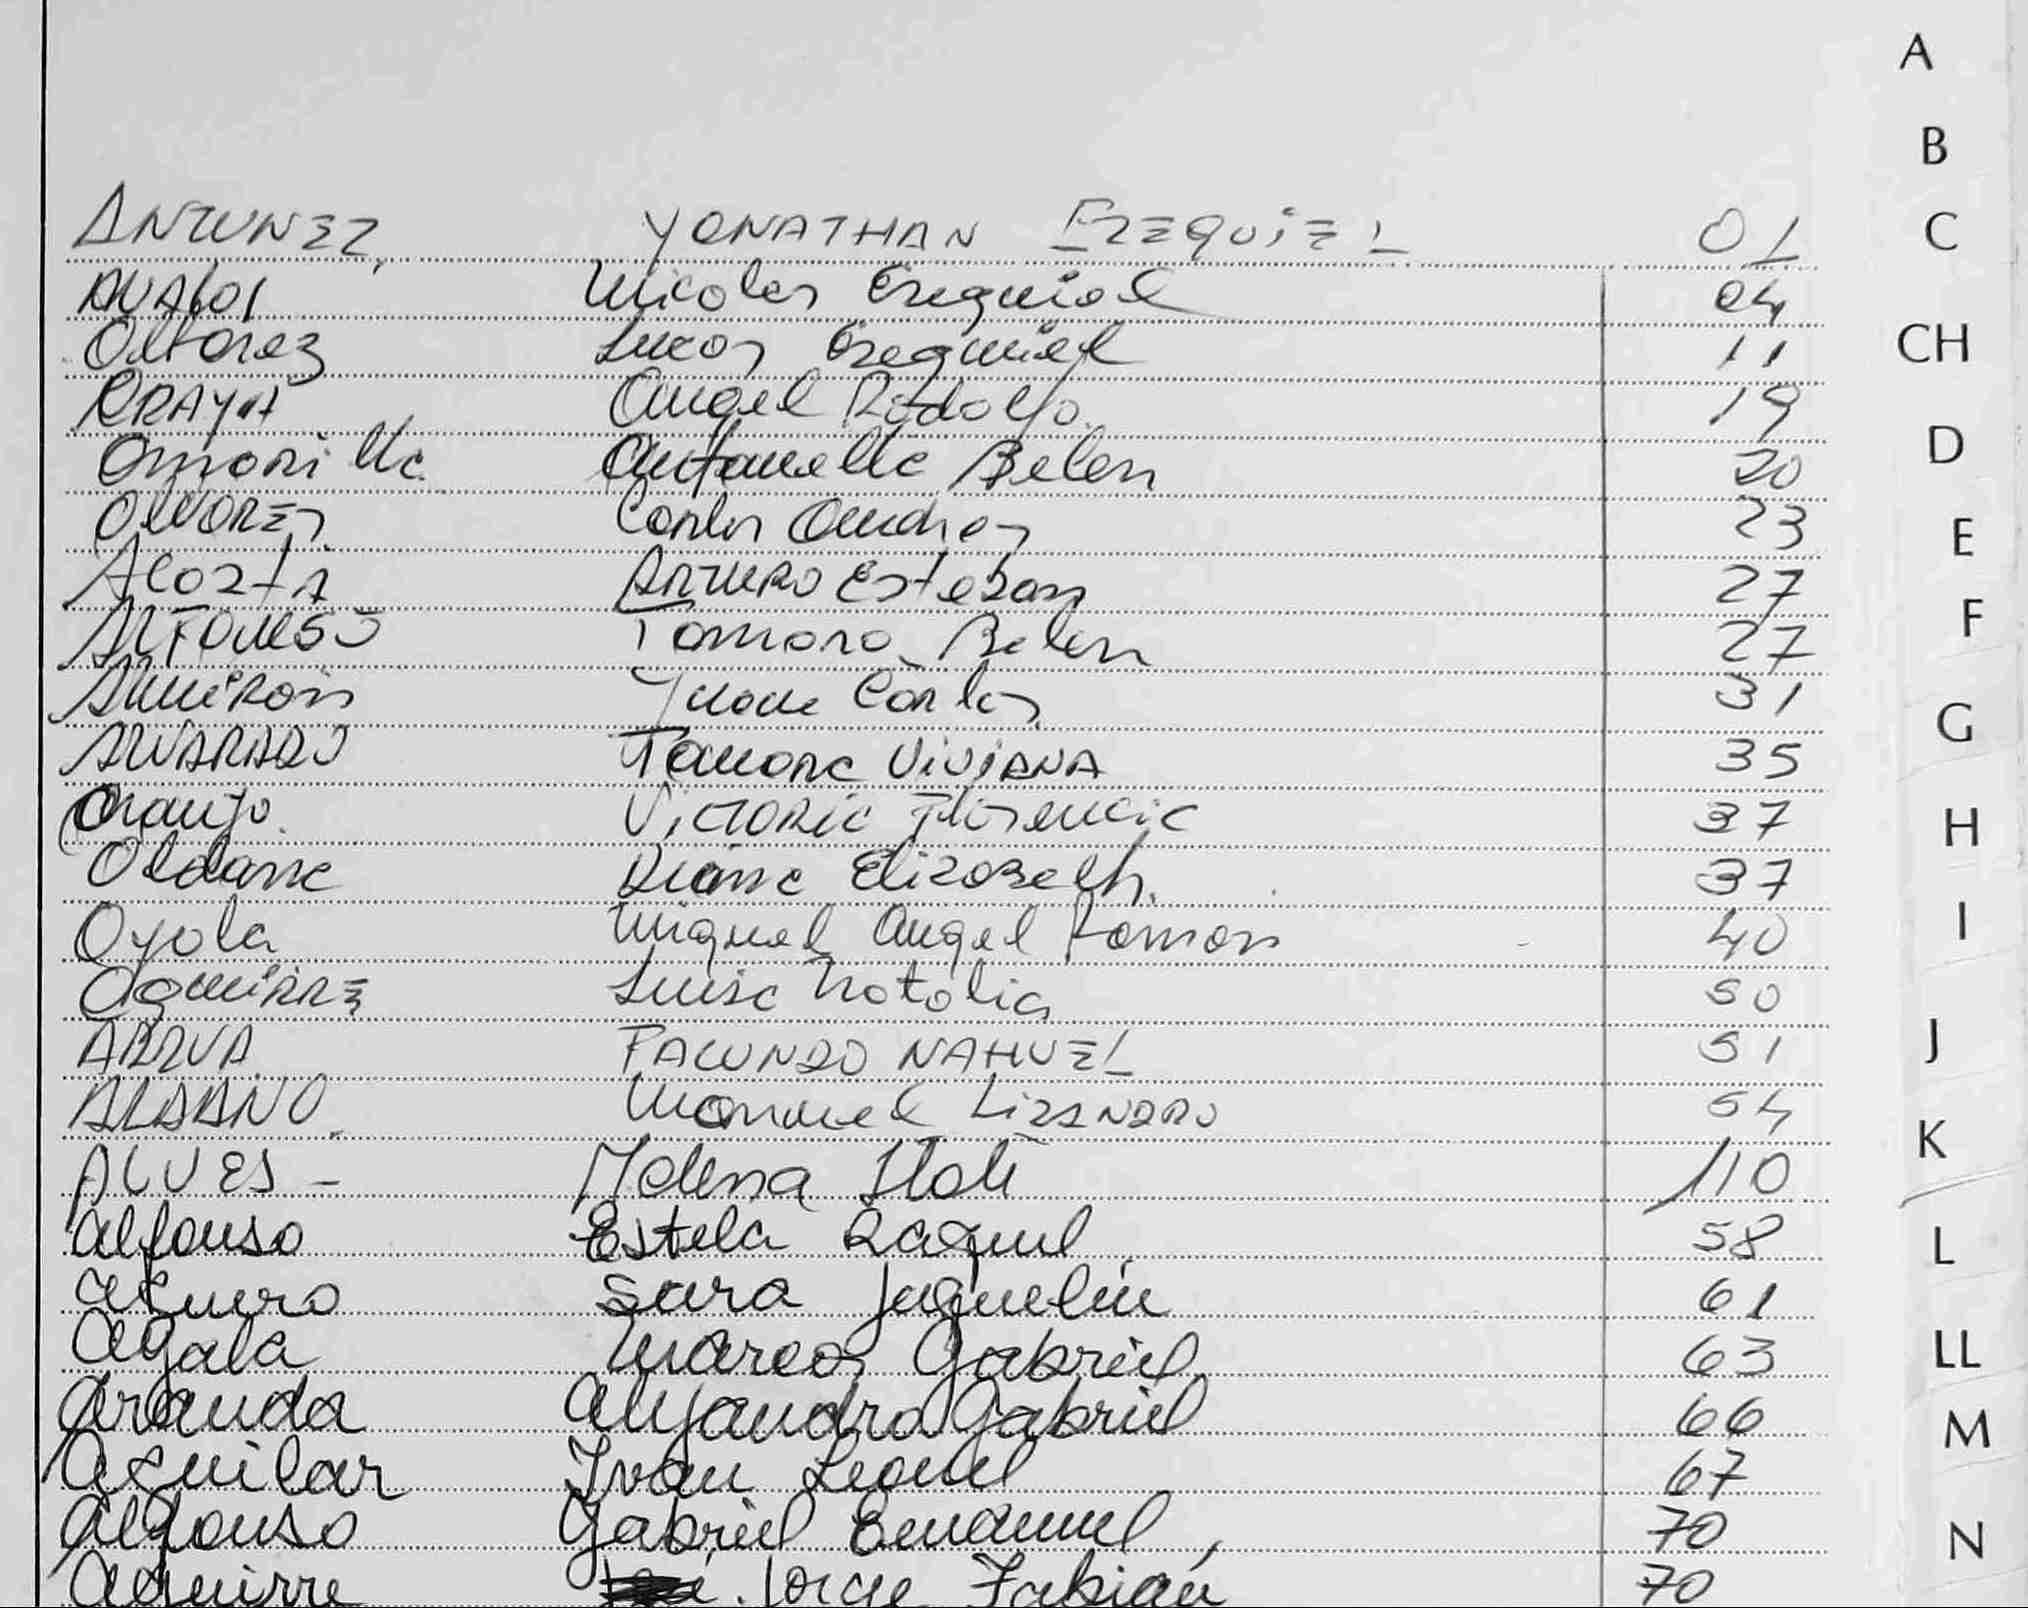 ANTUNEZ, YONATHAN EZEQUIEL 01
AVALOS Nicolas Ezequiel 04
Altarez Lucas Ezequiel 11
ARAYA Angel Rodolfo. 19
Amarilla Antonella Belen 20
ALVAREZ Carlos Andres 23
Acosta ARTURO Esteban 27
ALFONSO Tamara Belen 27
Almiron Juan Carlos 31
ALVARADO Tamara VIVIANA 35
Araujo. Victoria Florencia 37
Aldana Diana Elizabeth. 37
Oyola Miguel Angel Ramon 40
Aguirre Luisa Natalia 50
FACUNDO NAHUEL 51
Manuel LIZANDRO 54
ALVES - Melina Itati 110
Alfonso Estela Raquel 58
Aguero Sara Jaquelin 61
Ayala Marcos Gabriel 63
Aranda Alejandro Gabriel 66
Aguilar Ivan Leonel 67
Alfonso Gabriel Emanuel, 70
Aguirre Jorge Fabian 70
A
B
C
CH
D
E
F
G
H
I
J
K
L
LL
M
N